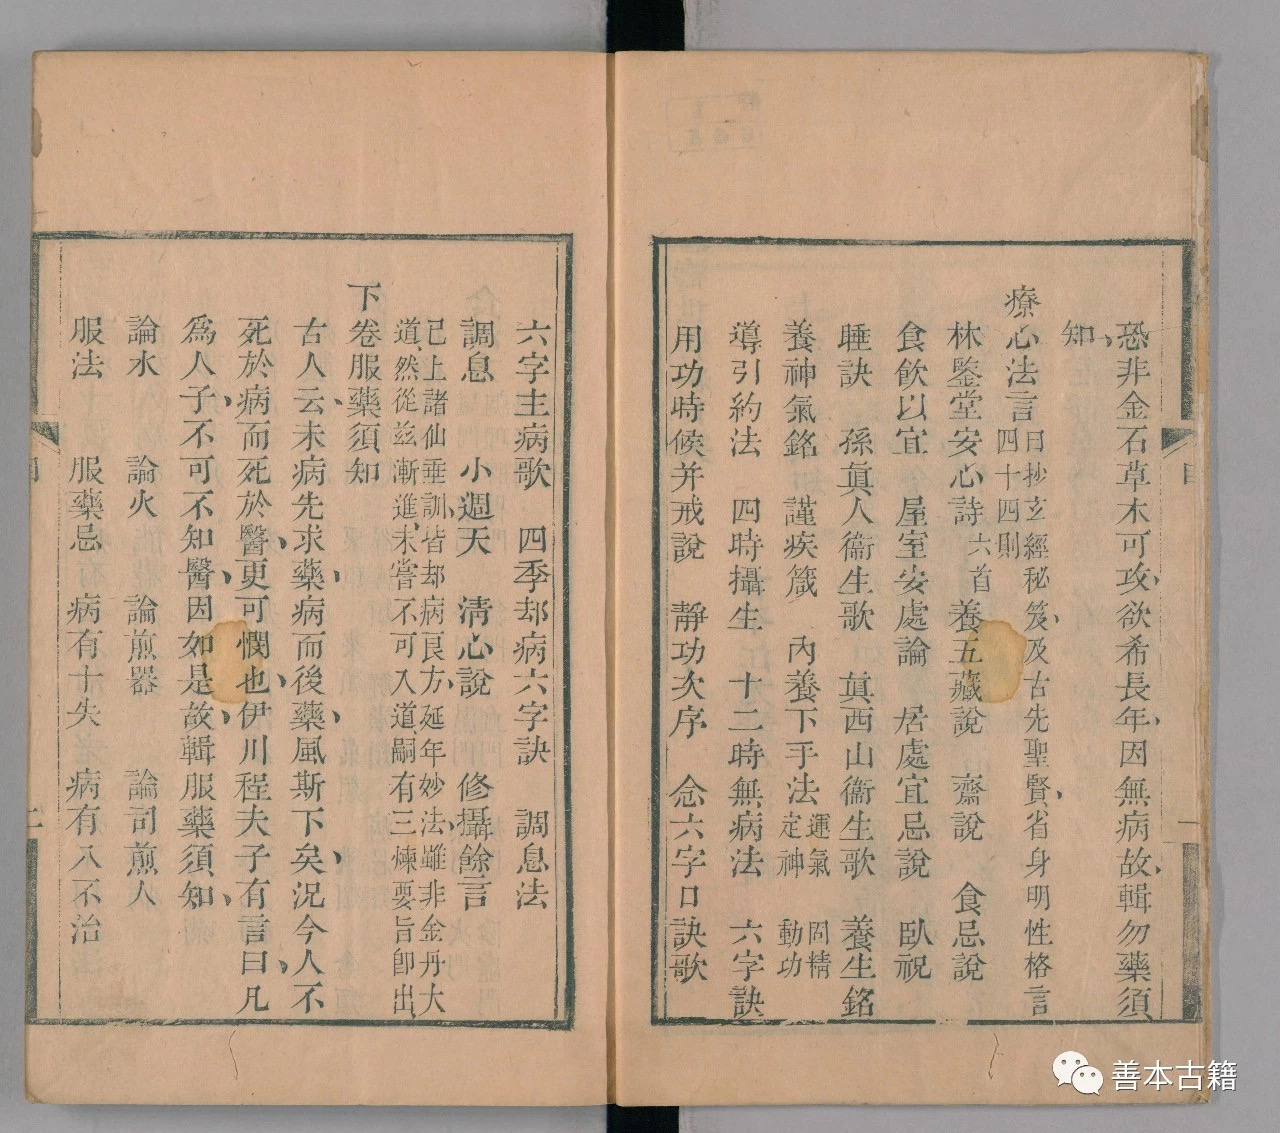 恐非金石草木可攻欲希長年因無病故輯勿藥須
知
療心法言 日抄玄經秘笈及古先聖賢省身明性格言
四十四則
林鑒堂安心詩六首 養五藏說 齋說 食忌說
食飲以宜 屋室安處論 居處宜忌說 臥祝
睡訣 孫眞人衞生歌 眞西山衞生歌 養生銘
養神氣銘 謹疾箴 內養下手法 運氣 固精
定神 動功
導引約法 四時攝生 十二時無病法 六字訣
用功時候并戒說 靜功次序 念六字口訣歌
六字主病歌 四季却病六字訣 調息法
調息 小週天 淸心說 修攝餘言
已上諸仙垂訓皆却病良方延年妙法雖非金丹大
道然從茲漸進未嘗不可入道嗣有三煉要旨卽出
下卷服藥須知
古人云未病先求藥病而後藥風斯下矣況今人不
死於病而死於醫更可憫也伊川程夫子有言曰凡
爲人子不可不知醫因如是故輯服藥須知
論水 論火 論煎器 論司煎人
服法 服藥忌 病有十失 病有八不治
善本古籍